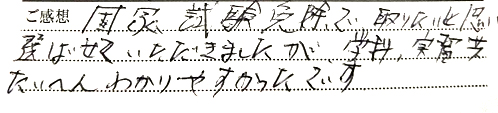 ご感想 国家試験免除で取りたいと思い
選ばせていただきましたが、学科、実習共
たいへんわかりやすかったです